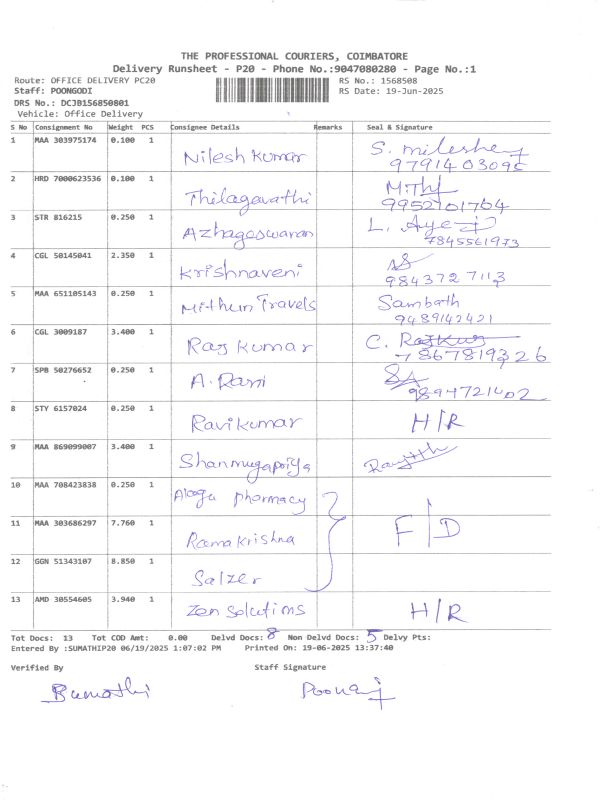 THE PROFESSIONAL COURIERS, COIMBATORE
Delivery Runsheet - P20 - Phone No.:9047080280 - Page No.:1
Route: OFFICE DELIVERY PC20 RS No.: 1568508
Staff: POONGODI RS Date: 19-Jun-2025
DRS No.: DCJB156850801
Vehicle: Office Delivery
S No Consignment No Weight PCS Consignee Details Remarks Seal & Signature
1 MAA 303975174 0.100 1 Nilesh Kumar S.
9791403095
2 HRD 7000623536 0.100 1 Thilagavathi
9952101764
3 STR 816215 0.250 1 Azhageswaran L.
7845561973
4 CGL 50145041 2.350 1 Krishnaveni
9843727113
5 MAA 651105143 0.250 1 Mithun Travels Sambath
9489142421
6 CGL 3009187 3.400 1 Raj Kumar C. Rajkur
7867819326
7 SPB 50276652 0.250 1 A. Rani
9894721402
8 STY 6157024 0.250 1 Ravikumar H/R
9 MAA 869099007 3.400 1 Shanmugapriya
10 MAA 708423838 0.250 1 Alagu Pharmacy
11 MAA 303686297 7.760 1 Ramakrishna F/D
12 GGN 51343107 8.850 1 Salzer
13 AMD 30554605 3.940 1 Zen Solutions H/R
Tot Docs: 13 Tot COD Amt: 0.00 Delvd Docs: 8 Non Delvd Docs: 5 Delvy Pts:
Entered By :SUMATHIP20 06/19/2025 1:07:02 PM Printed On: 19-06-2025 13:37:40
Verified By Staff Signature